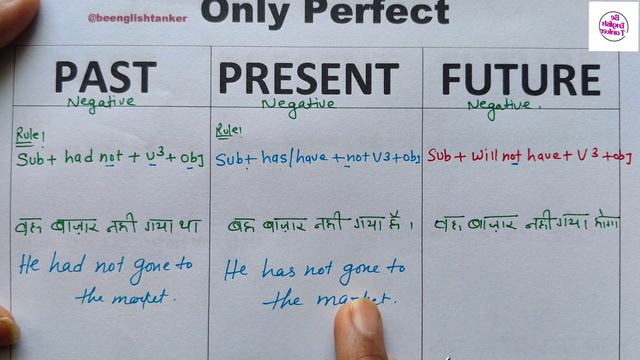 Only Perfect
@beenglishtanker
PAST PRESENT FUTURE
Negative Negative Negative.
Rule! Rule!
Sub+ had not + V³+ obj Sub+ has/have + not V3+ obj Sub + will not have + V³ +obj
वह बाज़ार नही गया था वह बाज़ार नही गया है। वह बाज़ार नही गया होगा
He had not gone to He has not gone to
the market. the market.